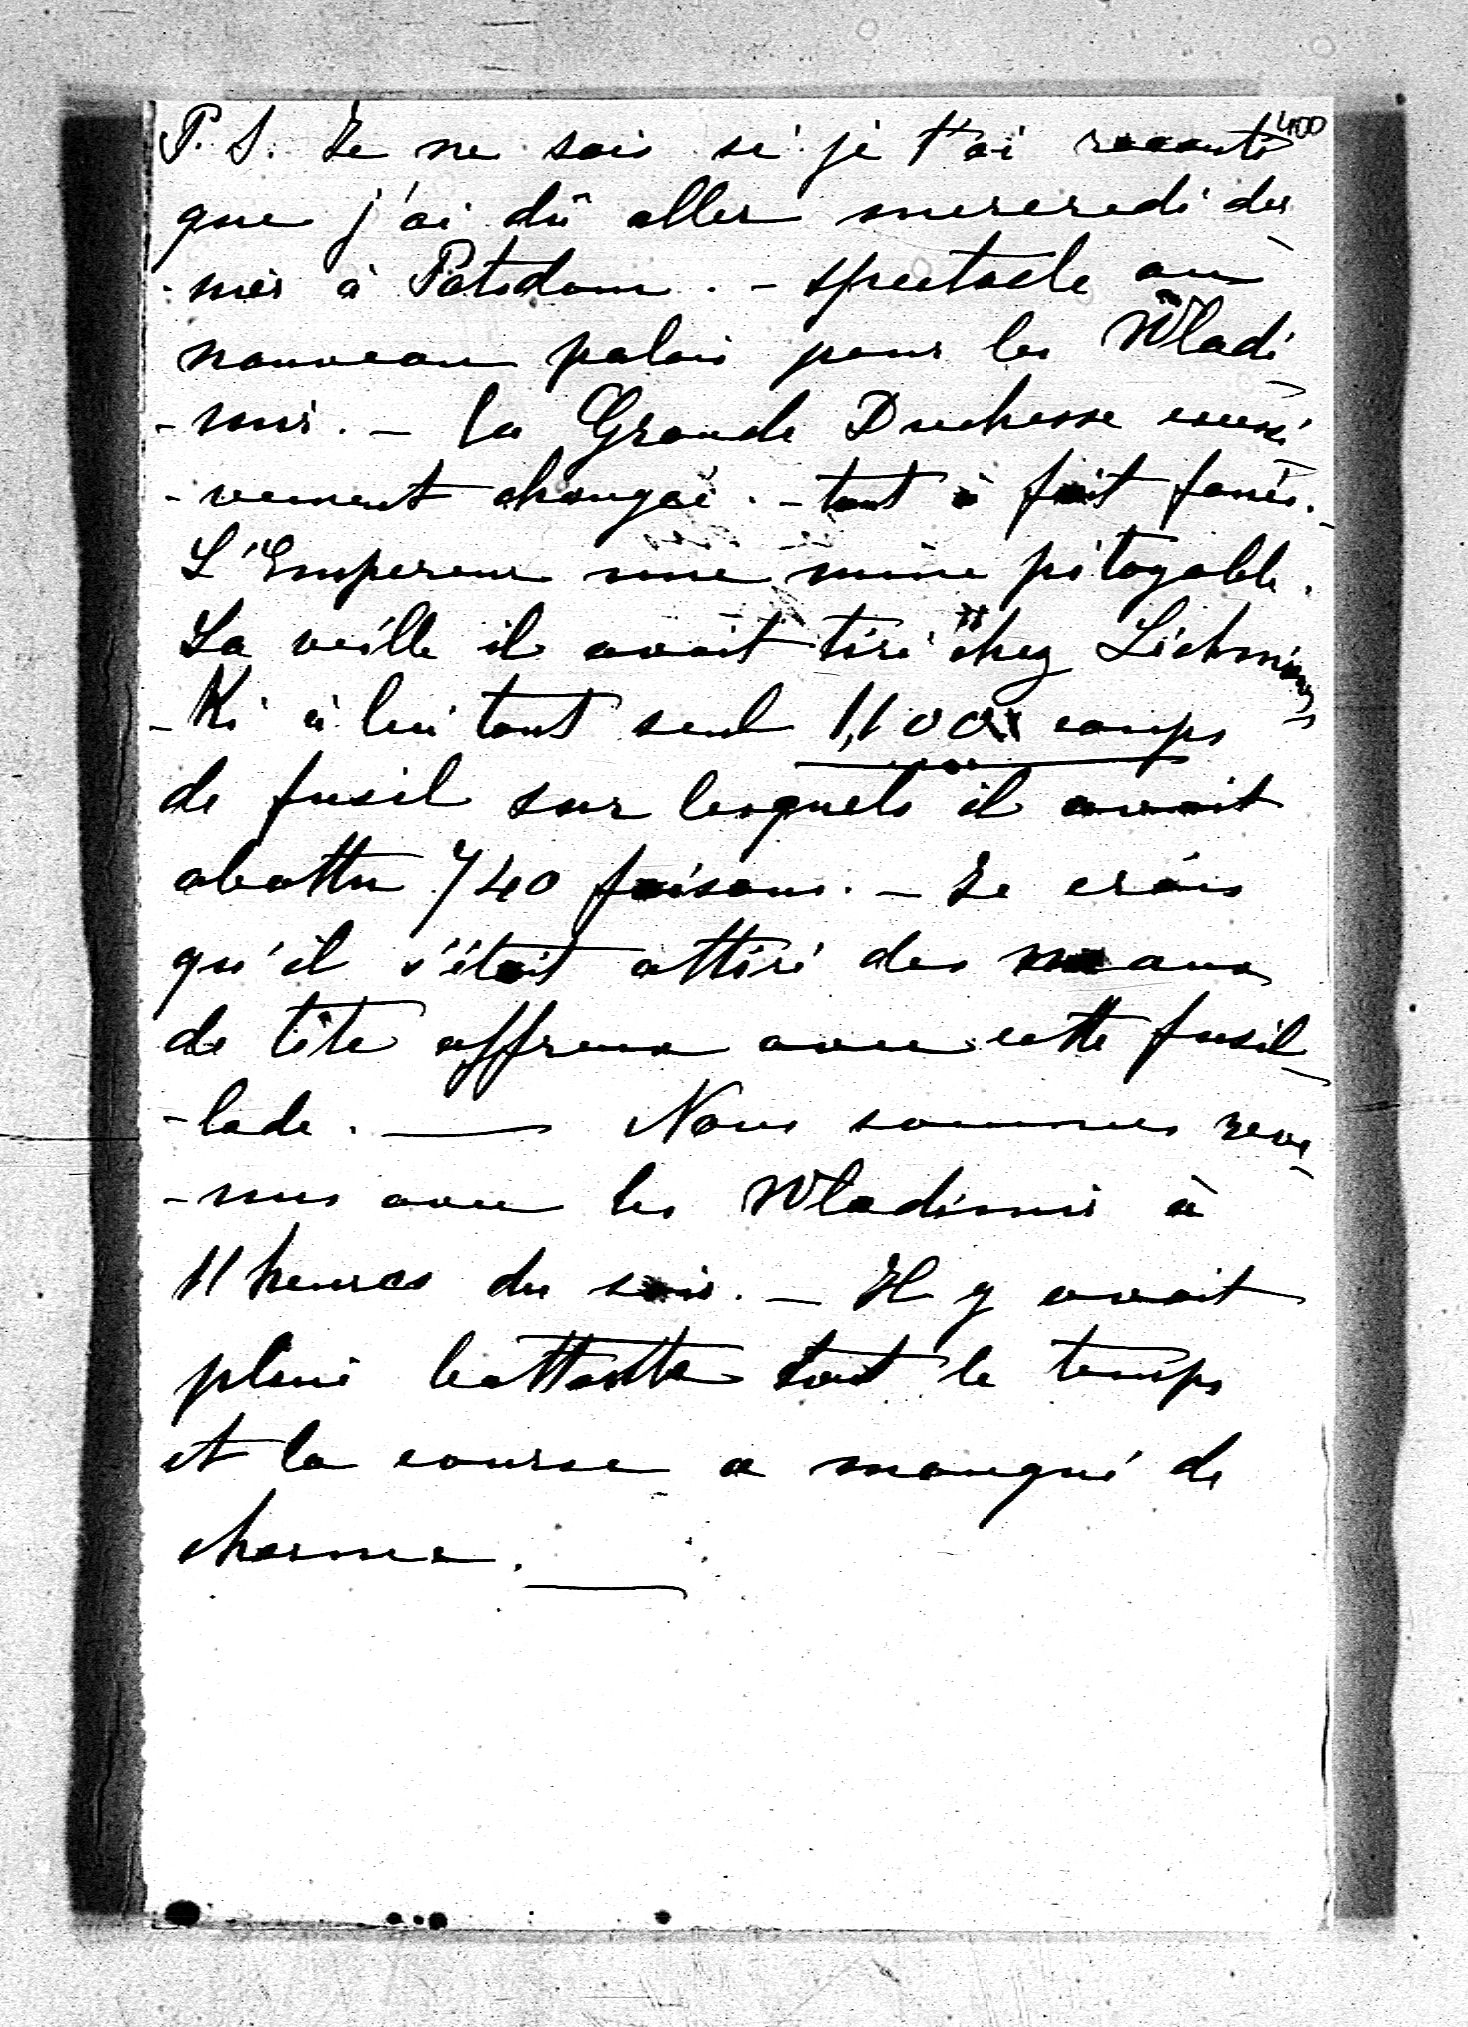 400
P. S. Je ne sais si je t'ai raconté
que j'ai dû aller mercredi der
-nier à Potsdam. - spectacle au
nouveau palais pour les Wladi
-mir. - la Grande Duchesse excessi
-vement changée. - tout à fait fanée.
L'Empereur une mine pitoyable.
La veille il avait tiré chez Lichnows
-Ki à lui tout seul 1,100 coups
de fusil sur lesquels il avait
abattu 740 faisans. - Je crois
qu'il s'était attiré des maux
de tête affreux avec cette fusil
-lade. — Nous sommes reve
-nus avec les Wladimir à
11 heures du soir. - Il y avait
pluie battante tout le temps
et la course a manqué de
charme. —